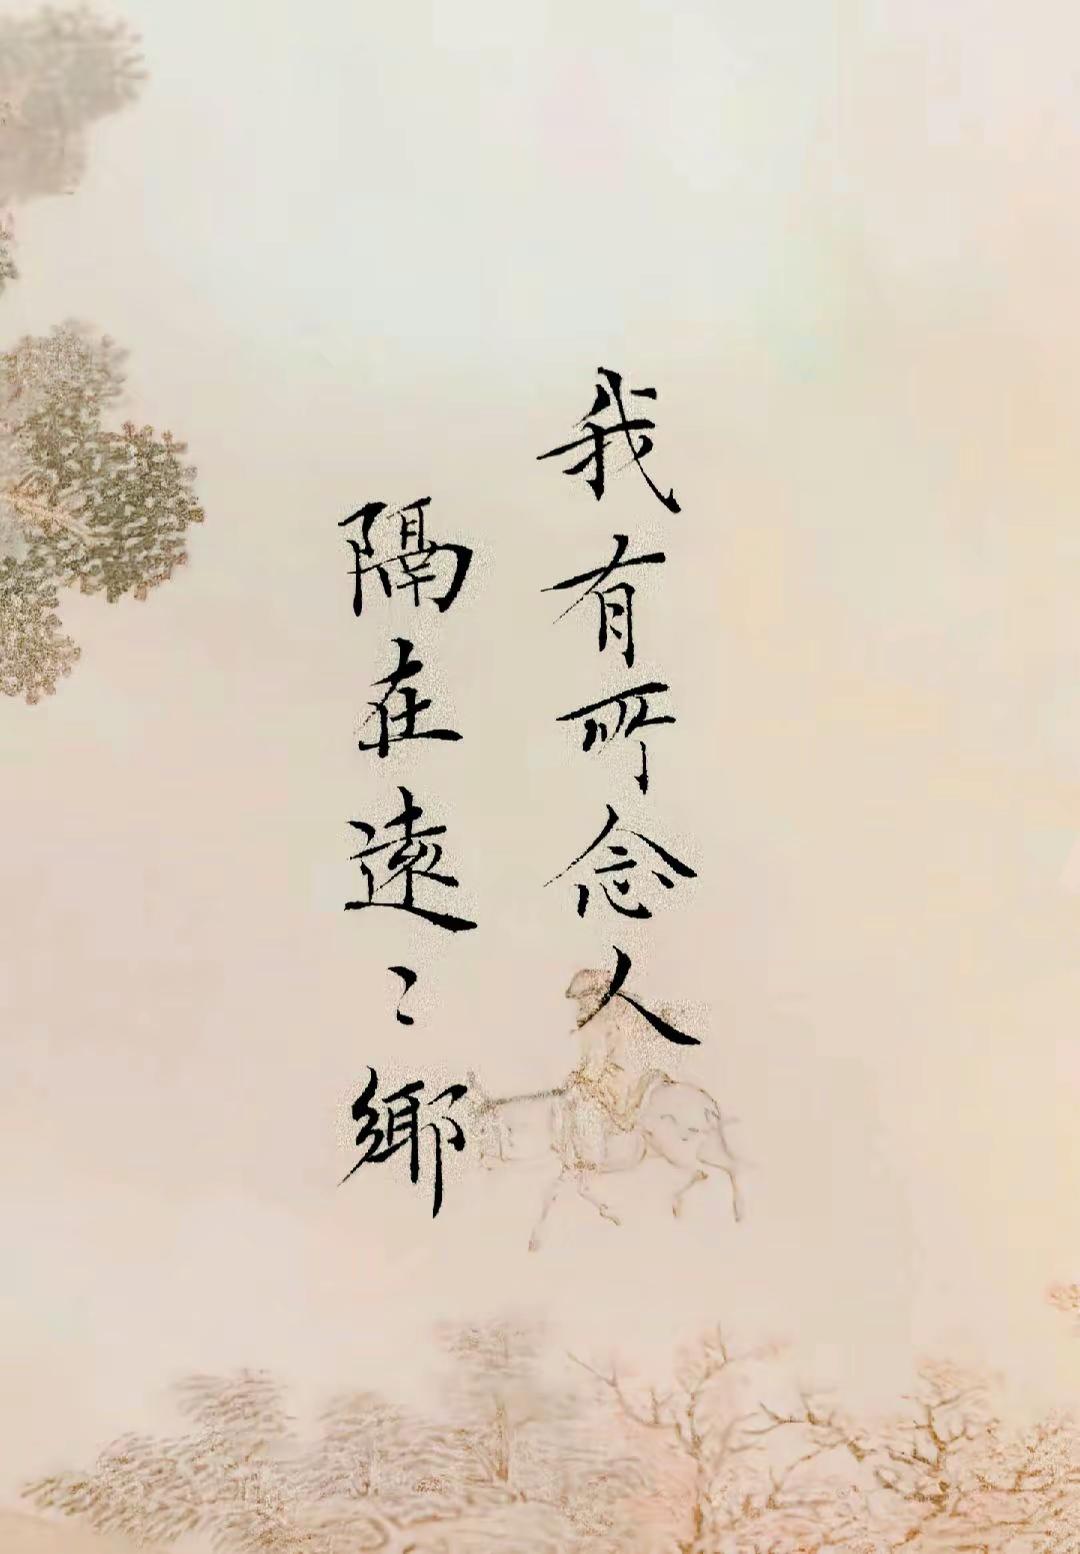 我有所念人
隔在遠〻鄉